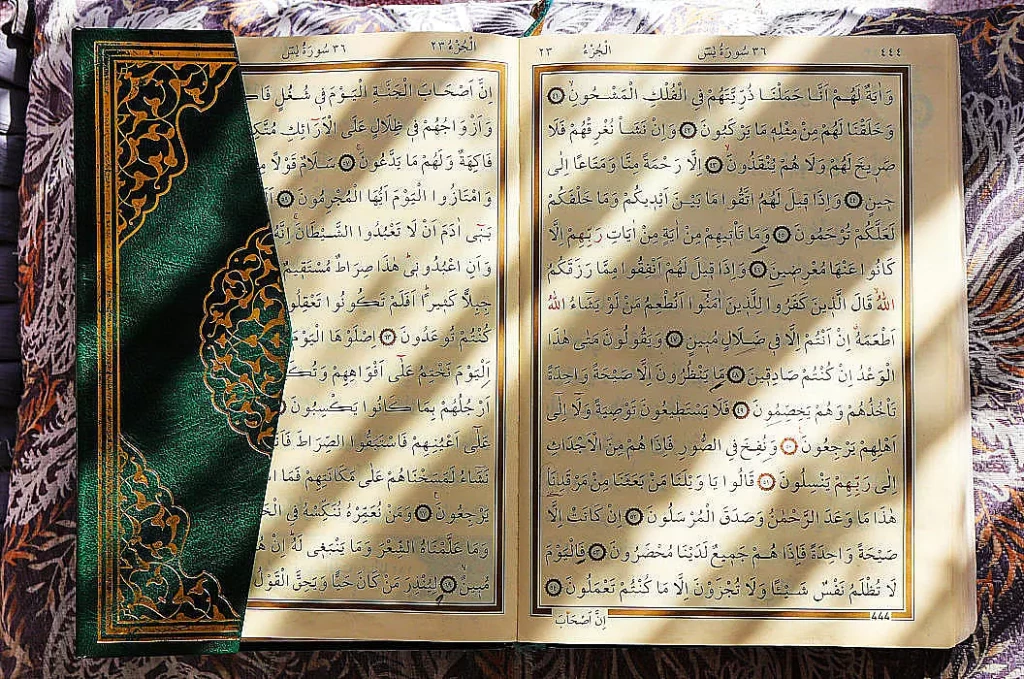 ٤٤٤ ٣٦ سُورَةُ يٰسٓ اَلْجُزْءُ ٢٣
وَاٰيَةٌ لَهُمْ اَنَّا حَمَلْنَا ذُرِّيَّتَهُمْ فِي الْفُلْكِ الْمَشْحُونِۙ
وَخَلَقْنَا لَهُمْ مِنْ مِثْلِه۪ مَا يَرْكَبُونَ وَاِنْ نَشَأْ نُغْرِقْهُمْ فَلَا
صَر۪يخَ لَهُمْ وَلَا هُمْ يُنْقَذُونَۙ اِلَّا رَحْمَةً مِنَّا وَمَتَاعًا اِلٰى
ح۪ينٍ وَاِذَا ق۪يلَ لَهُمُ اتَّقُوا مَا بَيْنَ اَيْد۪يكُمْ وَمَا خَلْفَكُمْ
لَعَلَّكُمْ تُرْحَمُونَ وَمَا تَأْت۪يهِمْ مِنْ اٰيَةٍ مِنْ اٰيَاتِ رَبِّهِمْ اِلَّا
كَانُوا عَنْهَا مُعْرِض۪ينَ وَاِذَا ق۪يلَ لَهُمْ اَنْفِقُوا مِمَّا رَزَقَكُمُ
اللّٰهُ قَالَ الَّذ۪ينَ كَفَرُوا لِلَّذ۪ينَ اٰمَنُٓوا اَنُطْعِمُ مَنْ لَوْ يَشَٓاءُ اللّٰهُ
اَطْعَمَهُ اِنْ اَنْتُمْ اِلَّا ف۪ي ضَلَالٍ مُب۪ينٍ وَيَقُولُونَ مَتٰى هٰذَا
الْوَعْدُ اِنْ كُنْتُمْ صَادِق۪ينَ مَا يَنْظُرُونَ اِلَّا صَيْحَةً وَاحِدَةً
تَأْخُذُهُمْ وَهُمْ يَخِصِّمُونَ فَلَا يَسْتَط۪يعُونَ تَوْصِيَةً وَلَٓا اِلٰٓى
اَهْلِهِمْ يَرْجِعُونَ۟ وَنُفِخَ فِي الصُّورِ فَاِذَا هُمْ مِنَ الْاَجْدَاثِ
اِلٰى رَبِّهِمْ يَنْسِلُونَ قَالُوا يَا وَيْلَنَا مَنْ بَعَثَنَا مِنْ مَرْقَدِنَاۢ
هٰذَا مَا وَعَدَ الرَّحْمٰنُ وَصَدَقَ الْمُرْسَلُونَ اِنْ كَانَتْ اِلَّا
صَيْحَةً وَاحِدَةً فَاِذَا هُمْ جَم۪يعٌ لَدَيْنَا مُحْضَرُونَ فَالْيَوْمَ
لَا تُظْلَمُ نَفْسٌ شَيْـًٔا وَلَا تُجْزَوْنَ اِلَّا مَا كُنْتُمْ تَعْمَلُونَ
444
اِنَّ اَصْحَابَ
٣٦ سُورَةُ يٰسٓ اَلْجُزْءُ ٢٣
اِنَّ اَصْحَابَ الْجَنَّةِ الْيَوْمَ ف۪ي شُغُلٍ
وَاَزْوَاجُهُمْ ف۪ي ظِلَالٍ عَلَى الْاَرَٓائِكِ
فَاكِهَةٌ وَلَهُمْ مَا يَدَّعُونَۚ سَلَامٌ قَوْلًا
وَامْتَازُوا الْيَوْمَ اَيُّهَا الْمُجْرِمُونَ
بَن۪ٓي اٰدَمَ اَنْ لَا تَعْبُدُوا الشَّيْطَانَۚ اِنَّهُ
وَاَنِ اعْبُدُون۪ي هٰذَا صِرَاطٌ مُسْتَق۪يمٌ
جِبِلًّا كَث۪يرًا اَفَلَمْ تَكُونُوا تَعْقِلُو
كُنْتُمْ تُوعَدُونَ اِصْلَوْهَا الْيَوْمَ
اَلْيَوْمَ نَخْتِمُ عَلٰٓى اَفْوَاهِهِمْ
اَرْجُلُهُمْ بِمَا كَانُوا يَكْسِبُونَ
عَلٰٓى اَعْيُنِهِمْ فَاسْتَبَقُوا الصِّرَاطَ
نَشَٓاءُ لَمَسَخْنَاهُمْ عَلٰى مَكَانَتِهِمْ فَمَا
يَرْجِعُونَ۟ وَمَنْ نُعَمِّرْهُ نُنَكِّسْهُ فِي
وَمَا عَلَّمْنَاهُ الشِّعْرَ وَمَا يَنْبَغ۪ي لَهُ اِنْ
مُب۪ينٌۙ لِيُنْذِرَ مَنْ كَانَ حَيًّا وَيَحِقَّ الْقَوْلُ